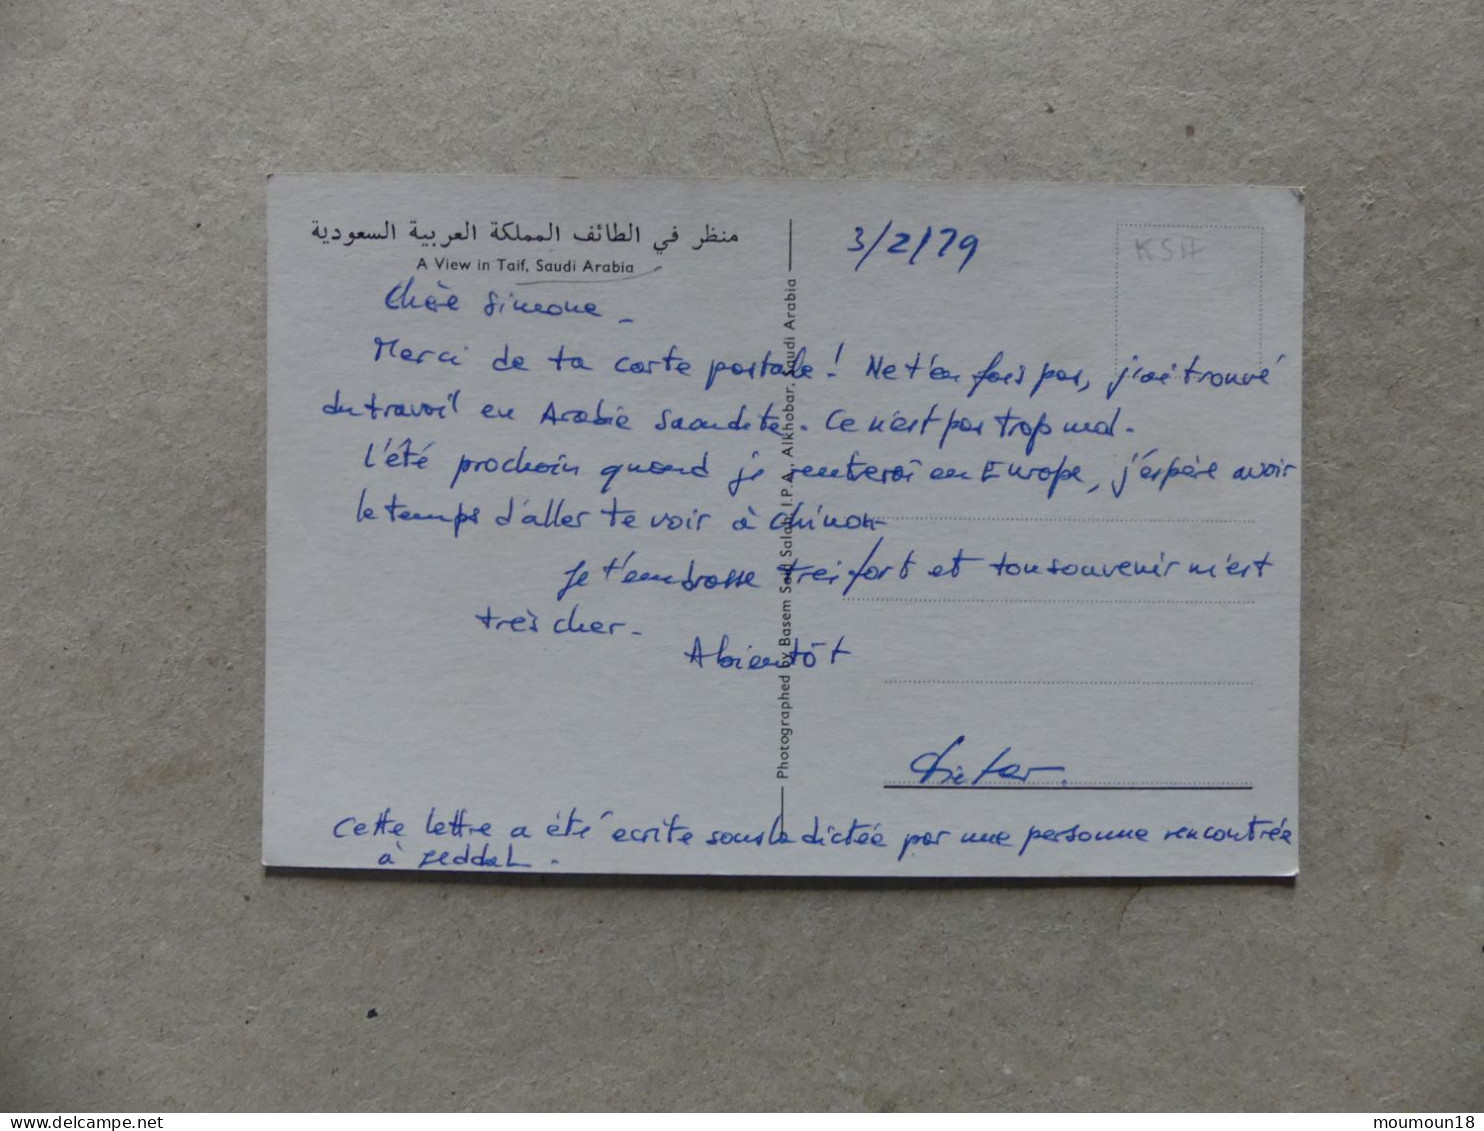 منظر في الطائف المملكة العربية السعودية
A View in Taif, Saudi Arabia
3/2/79
KSA
Chère Simone -
Merci de ta carte postale ! Ne t'en fais pas, j'ai trouvé
du travail en Arabie Saoudite. Ce n'est pas trop mal.
L'été prochain quand je rentrerai en Europe, j'espère avoir
le temps d'aller te voir à Chinon.
Je t'embrasse très fort et ton souvenir m'est
très cher.
A bientôt
Dieter.
Cette lettre a été écrite sous la dictée par une personne rencontrée
à Jeddah.
Photographed by Basem Said Salam, I.P.A., Alkhobar, Saudi Arabia
delcampe.net
moumoun18